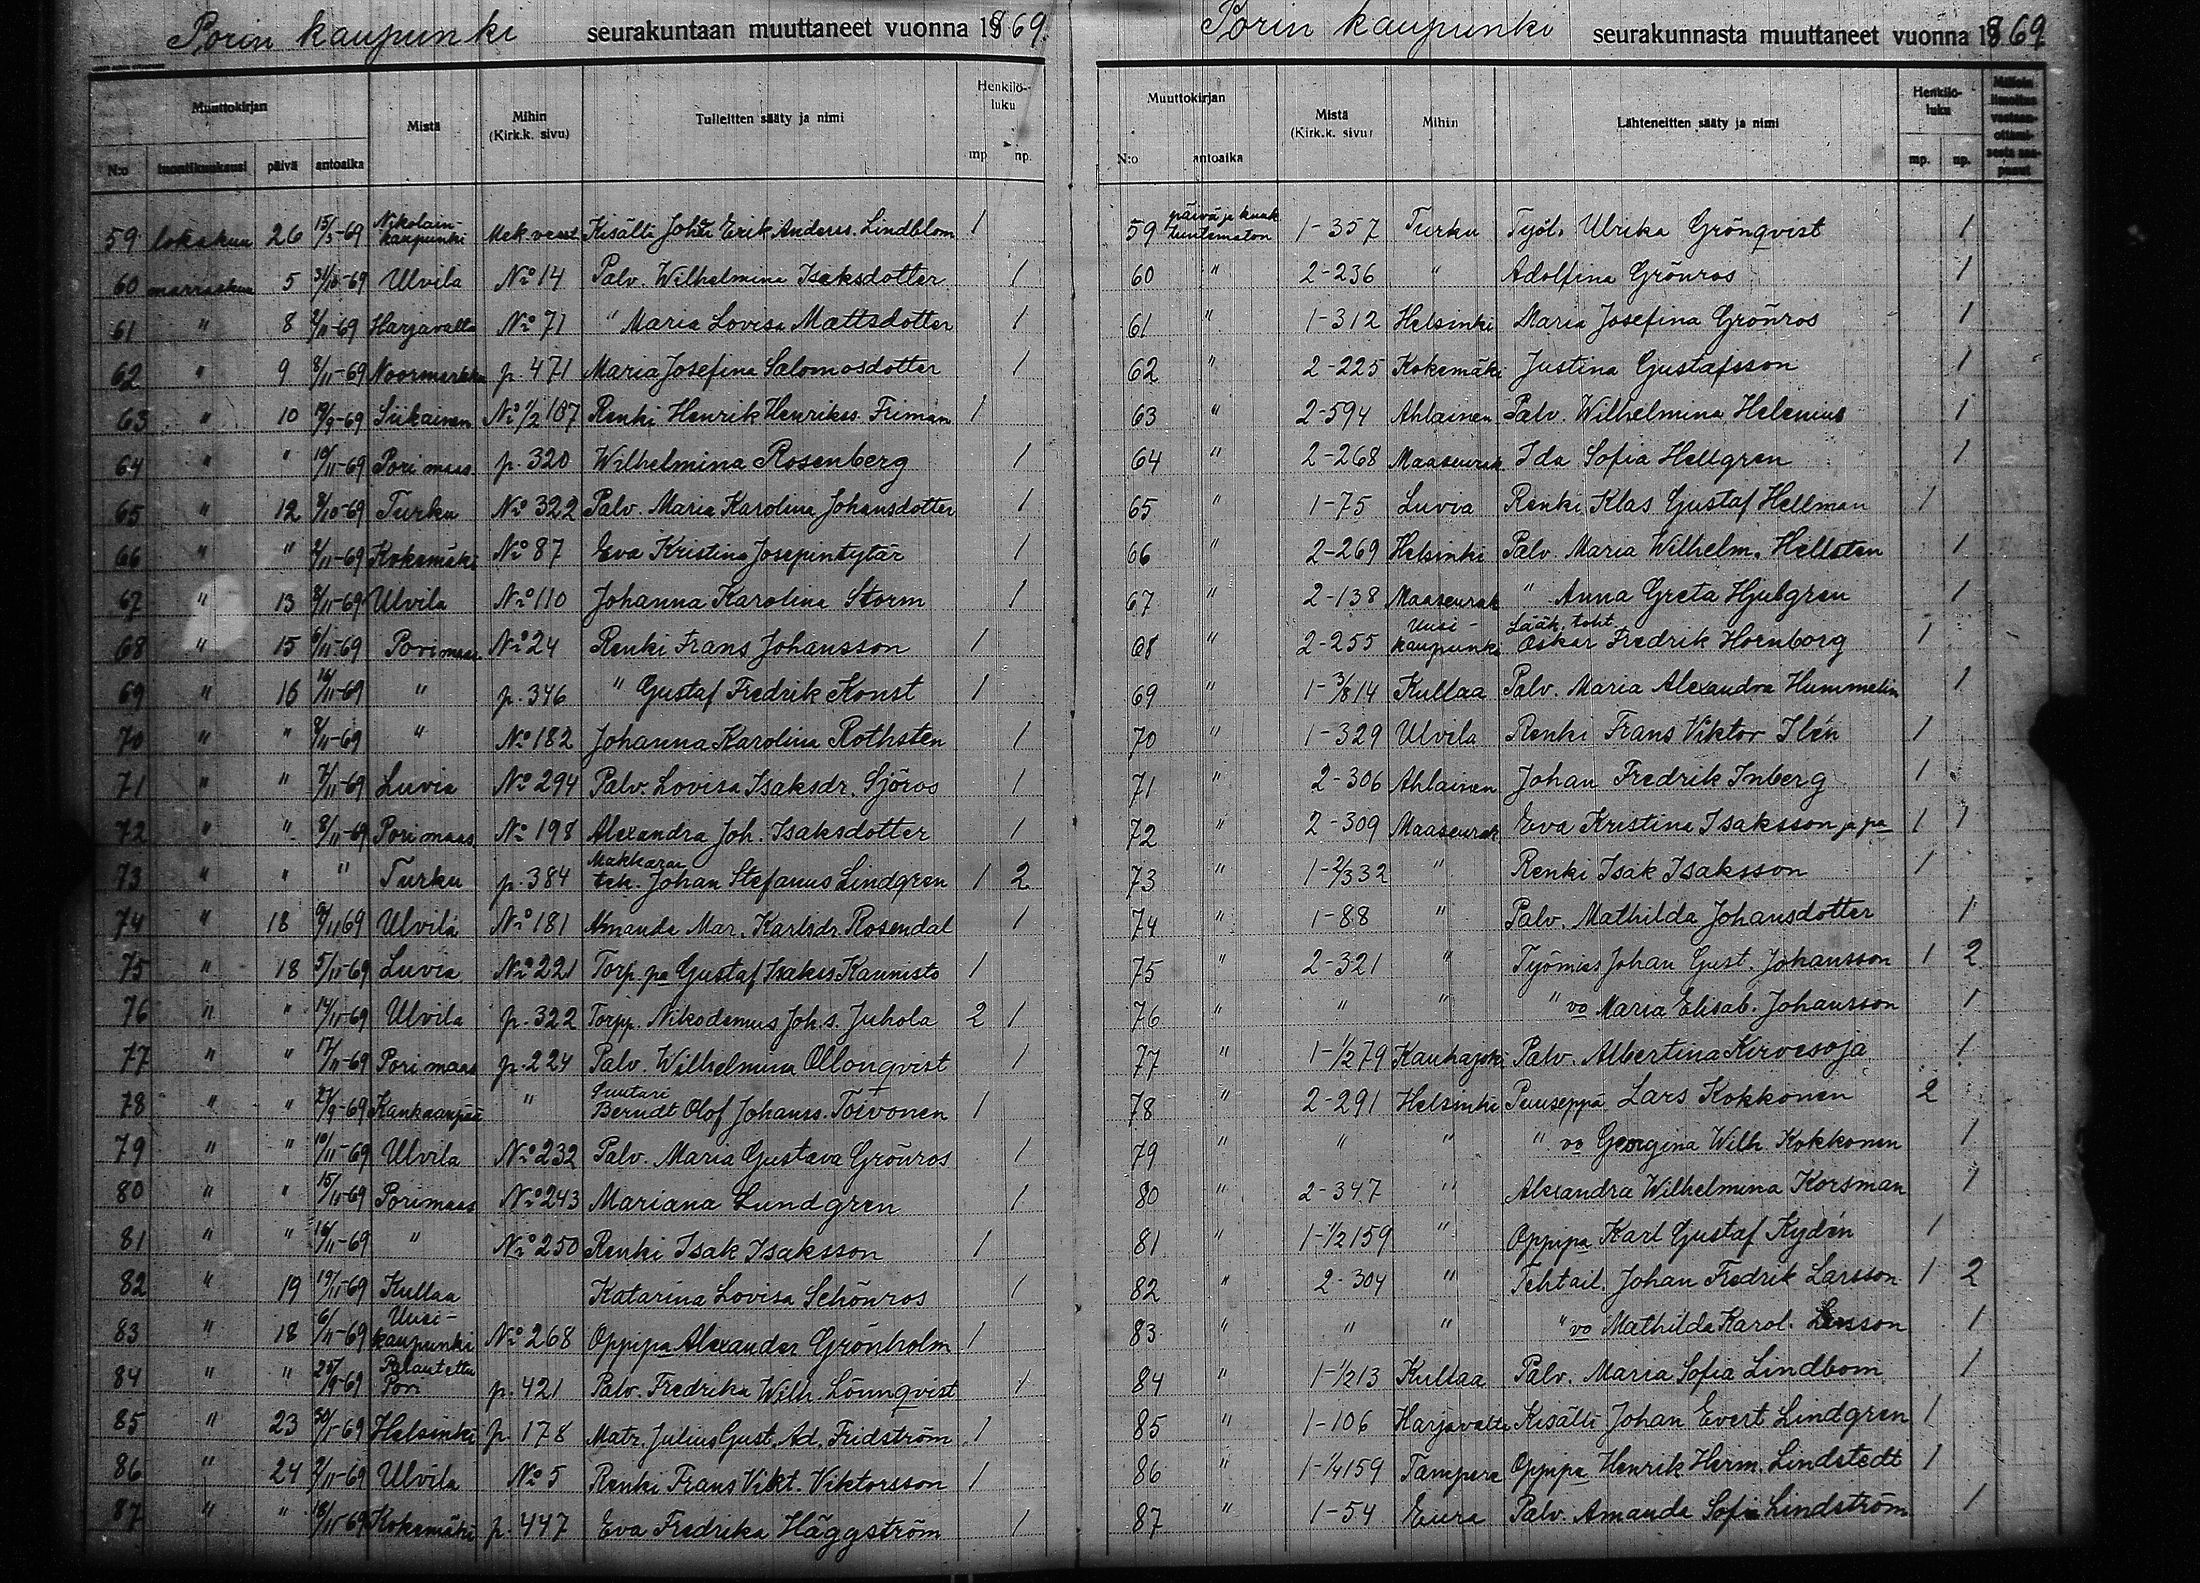 Porin kaupunki seurakuntaan muuttaneet vuonna 1869.
Muuttokirjan Mistä Mihin (Kirk.k. sivu) Tulleitten sääty ja nimi Henkilöluku
N:o tuontikuukausi päivä antoaika mp. np.
59 lokakuu 26 15/5-69 Nikolainkaupunki Kisälli Joh. Erik Anderss. Lindblom 1
60 marraskuu 5 31/10-69 Ulvila No 14 Palv. Wilhelmina Isaksdotter 1
61 " 8 2/11-69 Harjavalta No 71 " Maria Lovisa Mattsdotter 1
62 " 9 8/11-69 Noormarkku p. 471 Maria Josefina Salomosdotter 1
63 " 10 19/9-69 Siikainen No 1/2 107 Renki Henrik Henrikss. Friman 1
64 " " 10/11-69 Pori maas p. 320 Wilhelmina Rosenberg 1
65 " 12 8/10-69 Turku No 322 Palv. Maria Karolina Johansdotter 1
66 " " 2/11-69 Kokemäki No 87 Eva Kristina Josepintytär 1
67 " 13 8/11-69 Ulvila No 110 Johanna Karolina Storm 1
68 " 15 6/11-69 Pori maas No 24 Renki Frans Johansson 1
69 " 16 16/11-69 " p. 346 " Gustaf Fredrik Konst 1
70 " " 9/11-69 " No 182 Johanna Karolina Rothsten 1
71 " " 7/11-69 Luvia No 294 Palv. Lovisa Isaksdr. Sjöros 1
72 " " 8/11-69 Pori maas No 198 Alexandra Joh. Isaksdotter 1
73 " " " Turku p. 384 Makkarantek. Johan Stefanus Lindgren 1 2
74 " 18 9/11 69 Ulvila No 181 Amanda Mar. Karlsdr. Rosendal 1
75 " 18 5/11-69 Luvia No 221 Torp. pa Gustaf Isakss. Kaunisto 1
76 " " 14/11-69 Ulvila p. 322 Torpp. Nikodemus Joh.s. Juhola 2 1
77 " " 17/11-69 Pori maas p. 224 Palv. Wilhelmina Ollonqvist 1
78 " " 27/9-69 Kankaanpää " Suutari Berndt Olof Johanss. Toivonen 1
79 " " 10/11-69 Ulvila No 232 Palv. Maria Gustava Grönros 1
80 " " 15/11-69 Pori maas No 243 Mariana Lundgren 1
81 " " 16/11-69 " No 250 Renki Isak Isaksson 1
82 " 19 19/11-69 Kullaa Katarina Lovisa Schönros 1
83 " 18 6/11-69 Uusikaupunki No 268 Oppipa Alexander Grönholm 1
84 " " 25/9-69 Palautettu Pori p. 421 Palv. Fredrika Wilh. Lönnqvist 1
85 " 23 Helsinki p. 178 Matr. Julius Gust. Ad. Fridström 1
86 " 24 2/11-69 Ulvila No 5 Renki Frans Vikt. Viktorsson 1
87 " " 18/11-69 Kokemäki p. 447 Eva Fredrika Häggström 1
Porin kaupunki seurakunnasta muuttaneet vuonna 1869
Muuttokirjan Mistä (Kirk.k. sivu) Mihin Lähteneitten sääty ja nimi Henkilöluku
N:o antoaika mp. np.
59 päivä ja kuuk tuntematon 1-357 Turku Työl. Ulrika Grönqvist 1
60 " 2-236 " Adolfina Grönros 1
61 " 1-312 Helsinki Maria Josefina Grönros 1
62 " 2-225 Kokemäki Justina Gustafsson 1
63 " 2-594 Ahlainen Palv. Wilhelmina Helenius 1
64 " 2-268 Maaseurak Ida Sofia Hellgren 1
65 " 1-75 Luvia Renki Klas Gustaf Hellman 1
66 " 2-269 Helsinki Palv. Maria Wilhelm. Hellsten 1
67 " 2-138 Maaseurak " Anna Greta Hjulgren 1
68 " 2-255 Uusikaupunki Lääk. toht Oskar Fredrik Hornborg 1
69 " 1-3/8 14 Kullaa Palv. Maria Alexandra Hummelin 1
70 " 1-329 Ulvila Renki Frans Viktor Ilén 1
71 " 2-306 Ahlainen Johan Fredrik Inberg 1
72 " 2-309 Maaseurak Eva Kristina Isaksson ja pa 1 1
73 " 1-2/3 32 " Renki Isak Isaksson 1
74 " 1-88 " Palv. Mathilda Johansdotter 1
75 " 2-321 " Työmies Johan Gust. Johansson 1 2
76 " " " " vo Maria Elisab. Johansson 1
77 " 1-1/2 79 Kauhajoki Palv. Albertina Kirvesoja 1
78 " 2-291 Helsinki Puuseppä Lars Kokkonen 2
79 " " " " vo Georgina Wilh. Kokkonen 1
80 " 2-347 " Alexandra Wilhelmina Korsman 1
81 " 1-1/2 159 " Oppipa Karl Gustaf Kydén 1
82 " 2-304 " Tehtail. Johan Fredrik Larsson 1 2
83 " " " " vo Mathilda Karol. Larsson 1
84 " 1-1/2 13 Kullaa Palv. Maria Sofia Lindbom 1
85 " 1-106 Harjavalta Kisälli Johan Evert Lindgren 1
86 " 1-1/4 159 Tampere Oppipa Henrik Herm. Lindstedt 1
87 " 1-54 Eura Palv. Amanda Sofia Lindström 1